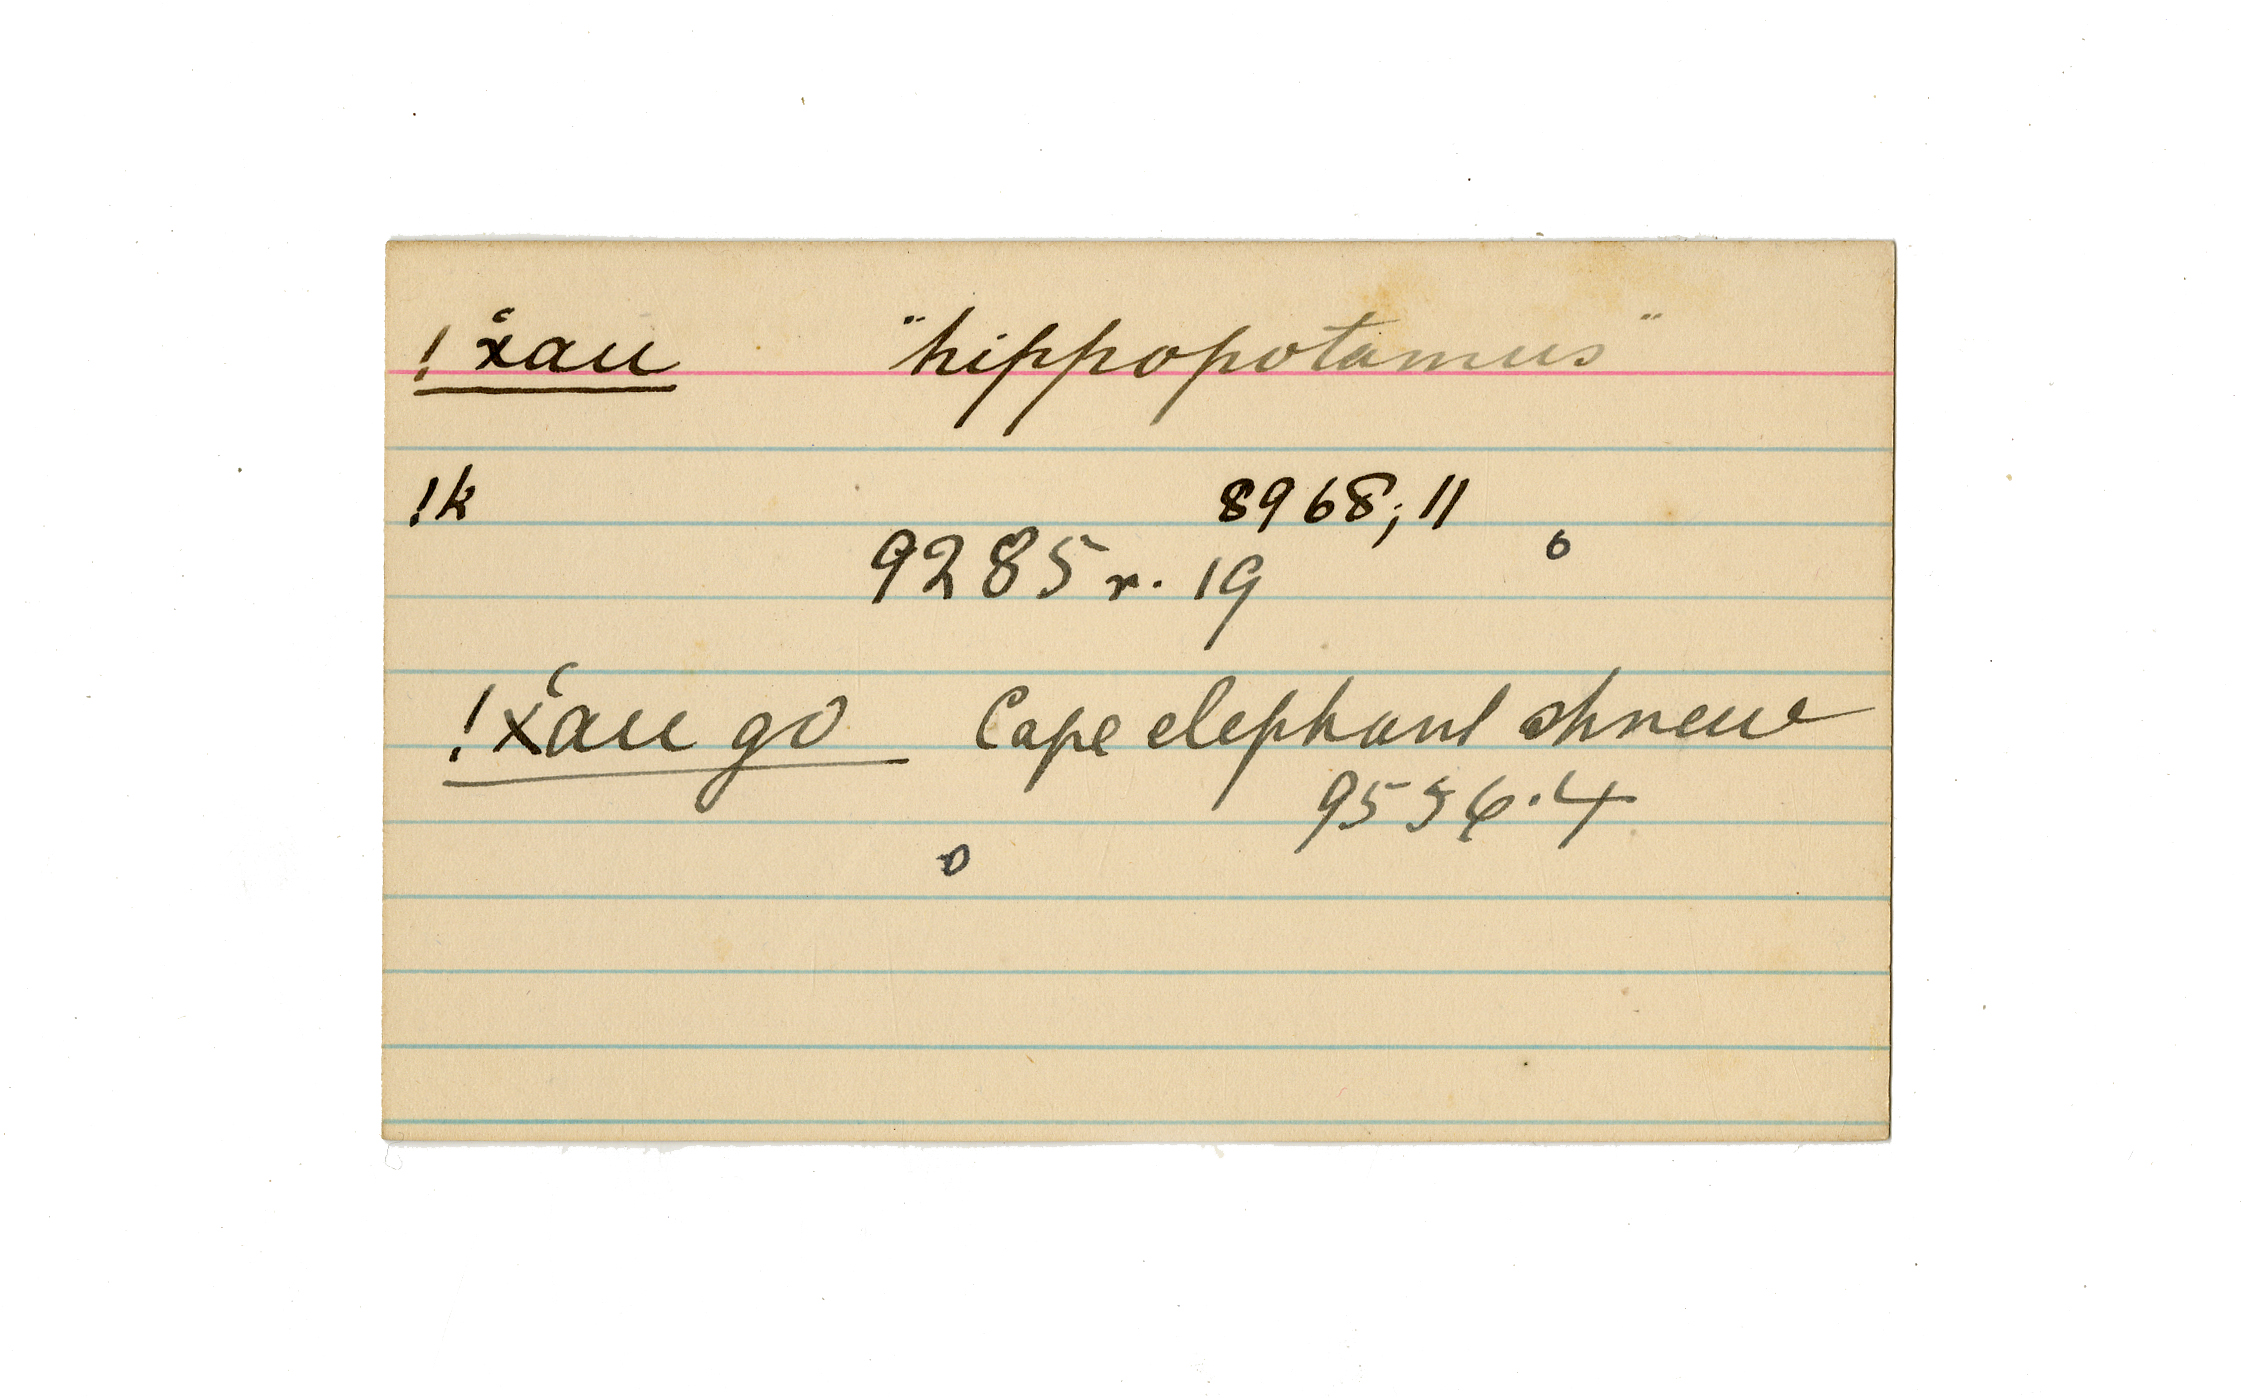 !x̔au "hippopotamus"
!k 8968; 11
9285 r. 19
!x̔au go Cape elephant shrew
9556.4